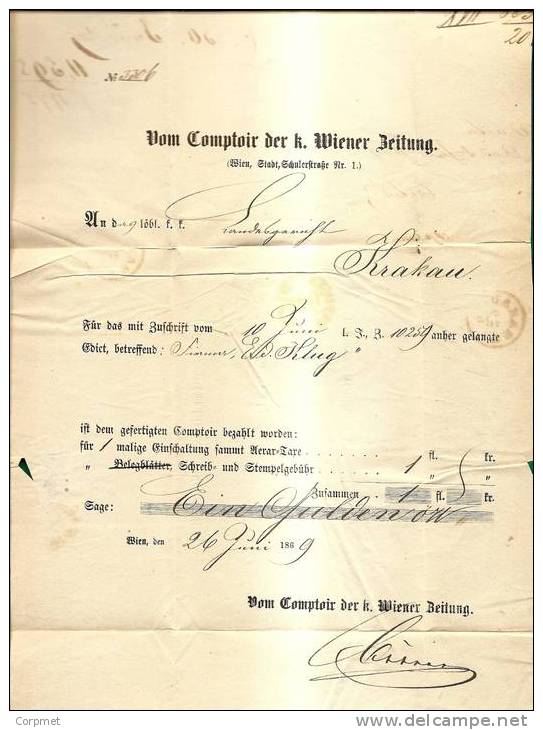 20
№ 3306
11395
Vom Comptoir der k. Wiener Zeitung.
(Wien, Stadt, Schulerstraße Nr. 1.)
An das löbl. k. k. Landesgericht
Krakau.
Für das mit Zuschrift vom 10 Juni l. J., Z. 10259 anher gelangte
Edict, betreffend: Firma, "Ed. Klug"
ist dem gefertigten Comptoir bezahlt worden:
für 1 malige Einschaltung sammt Aerar-Taxe . . . . . . . fl. kr.
„ Belegblätter, Schreib- und Stempelgebühr . . . . . 1 „ „
Zusammen . 1 fl. kr.
Sage: Ein Gulden öW
Wien, den 26 Juni 1869
Vom Comptoir der k. Wiener Zeitung.
Copyright : Corpmet
www.delcampe.net